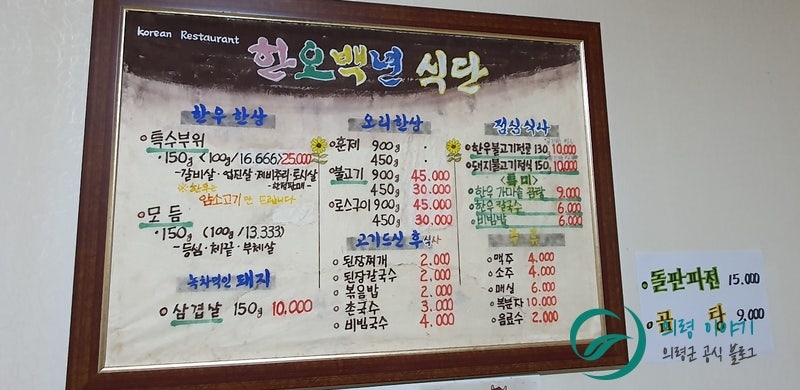 Korean Restaurant
한오백년 식단
한우한상
특수부위
150g <100g/16.666> 25.000
-갈비살·업진살·제비추리·토시살
-한정판매-
※한우는
암소고기만 드립니다
모듬
150g <100g/13.333>
-등심·채끝·부채살
녹차먹인 돼지
삼겹살 150g 10.000
오리한상
훈제 900g
450g
불고기 900g 45.000
450g 30.000
로스구이 900g 45.000
450g 30.000
고기드신 후 식사
된장찌개 2.000
된장칼국수 2.000
볶음밥 2.000
촌국수 3.000
비빔국수 4.000
점심식사
한우불고기전골 130, 10,000
돼지불고기정식 150, 10,000
<특미>
한우 가마솥 곰탕 9.000
한우 칼국수 6.000
비빔밥 6.000
맥주 4.000
소주 4.000
매실 6.000
복분자 10.000
음료수 2.000
돌판파전 15.000
곰탕 9.000
의령 이야기
의령군 공식 블로그